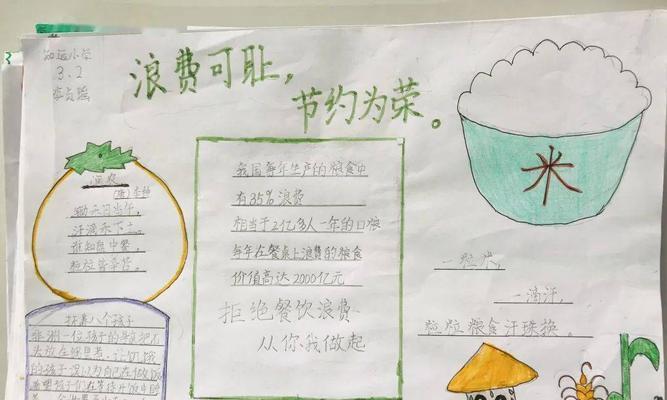 知远小学
3.2
浪费可耻，
节约为荣。
悯农
(唐)李绅
锄禾日当午，
汗滴禾下土。
谁知盘中餐，
粒粒皆辛苦。
我国每年生产的粮食中
有35%浪费
相当于2亿多人一年的口粮
每年在餐桌上浪费的粮食
价值高达2000亿元
拒绝餐饮浪费
从你我做起
米
一粒米，
一滴汗，
粒粒粮食汗珠换。
八个孩子
非洲一位孩子的母把石
头放在锅里煮，让饥饿
的孩子误以为自己在做饭